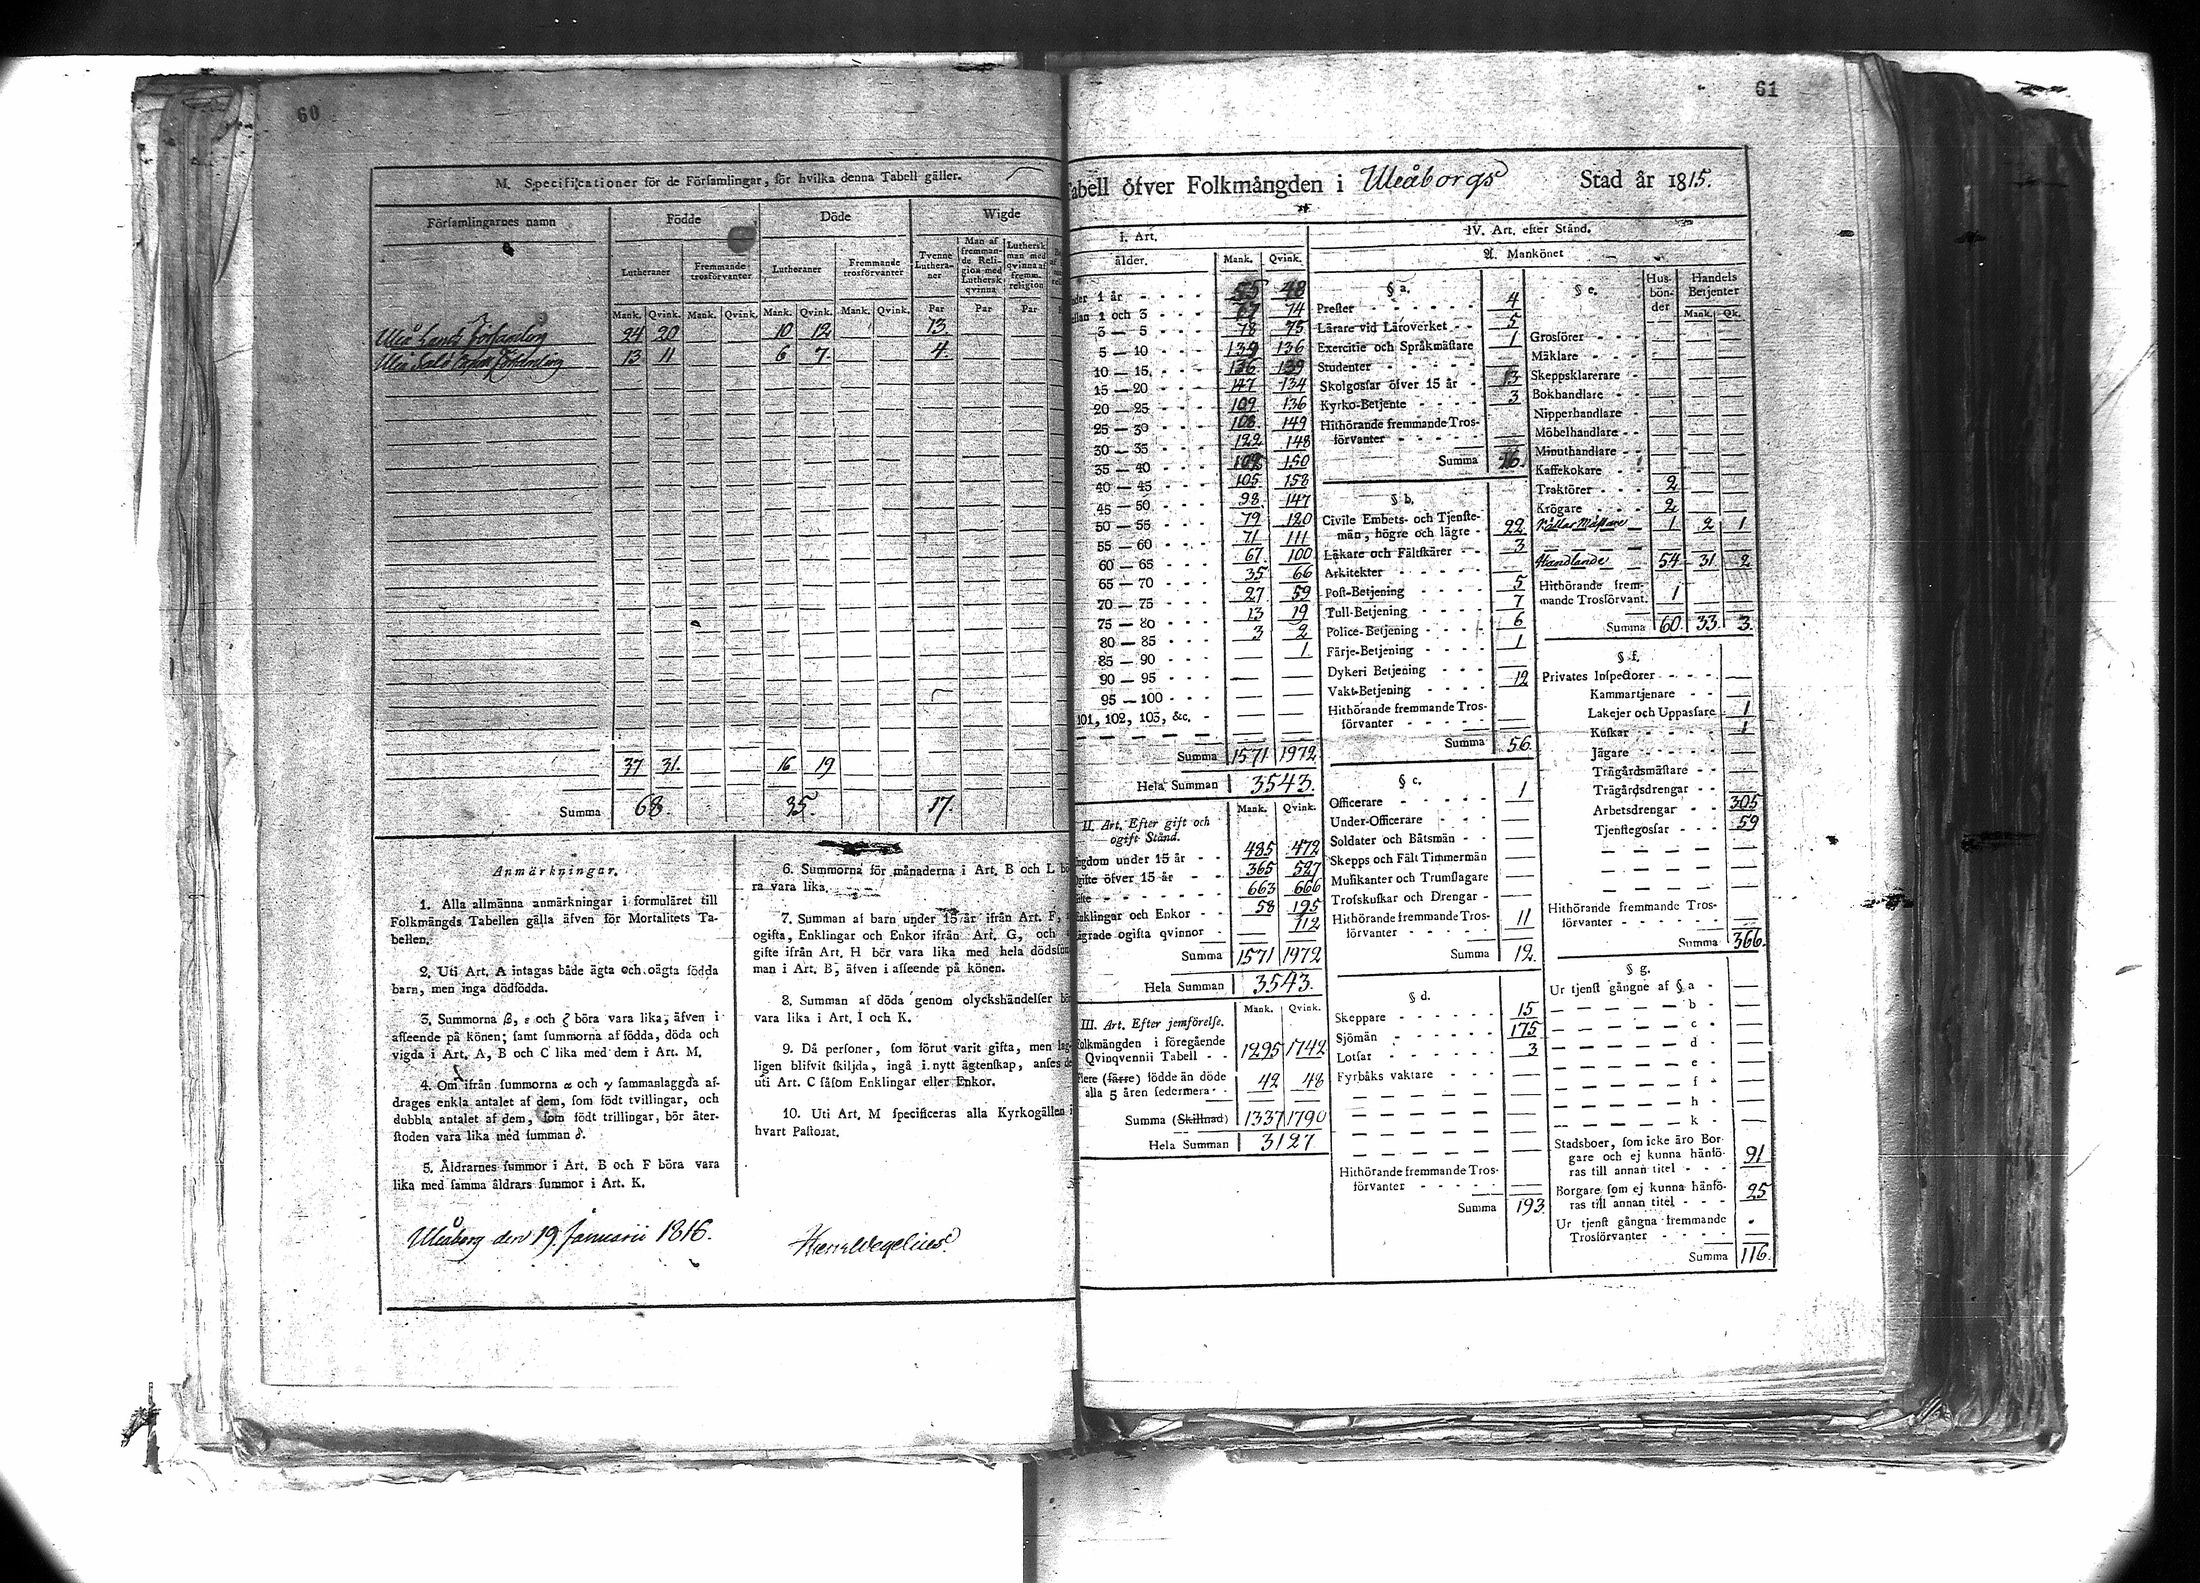 60
M. Specificationer för de Församlingar, för hvilka denna Tabell gäller.
Församlingarnes namn | Födde | Döde | Wigde
Lutheraner | Fremmande trosförvanter | Lutheraner | Fremmande trosförvanter | Tvenne Lutheraner | Man af fremmande Religion med Luthersk qvinna | Luthersk man med qvinna af fremm. religion
Mank. Qvink. Mank. Qvink. Mank. Qvink. Mank. Qvink. Par Par Par
Uleå Landt Församling 24 20 10 12 13
Uleå Församling 13 11 6 7 4
37 31 16 19
Summa 68. 35 17.
Anmärkningar.
1. Alla allmänna anmärkningar i formuläret till
Folkmängds Tabellen gälla äfven för Mortalitets Ta-
bellen.
2. Uti Art. A intagas både ägta och oägta födda
barn, men inga dödfödda.
3. Summorna β, ε och ζ böra vara lika, äfven i
afseende på könen; samt summorna af födda, döda och
vigda i Art. A, B och C lika med dem i Art. M.
4. Om ifrån summorna α och γ sammanlagda af-
drages enkla antalet af dem, som födt tvillingar, och
dubbla antalet af dem, som födt trillingar, bör åter-
stoden vara lika med summan δ.
5. Åldrarnes summor i Art. B och F böra vara
lika med samma åldrars summor i Art. K.
6. Summorna för månaderna i Art. B och L bö
ra vara lika.
7. Summan af barn under 15 år ifrån Art. F,
ogifta, Enklingar och Enkor ifrån Art. G, och
gifte ifrån Art. H bör vara lika med hela dödssum
man i Art. B, äfven i afseende på könen.
8. Summan af döda genom olyckshändelser bö
vara lika i Art. I och K.
9. Då personer, som förut varit gifta, men lag
ligen blifvit skiljda, ingå i nytt ägtenskap, anses de
uti Art. C såsom Enklingar eller Enkor.
10. Uti Art. M specificeras alla Kyrkogällen i
hvart Pastorat.
Uleåborg den 19. Januarii 1816.
Wegelius.
61
Tabell öfver Folkmängden i Uleåborgs Stad år 1815.
I. Art.
ålder. Mank. Qvink.
under 1 år 55 48
mellan 1 och 3 77 74
3 — 5 78 75
5 — 10 139 136
10 — 15 136 139
15 — 20 147 134
20 — 25 109 136
25 — 30 108 149
30 — 35 122 148
35 — 40 102 150
40 — 45 105 158
45 — 50 98 147
50 — 55 79 120
55 — 60 71 111
60 — 65 67 100
65 — 70 35 66
70 — 75 27 59
75 — 80 13 19
80 — 85 3 2
85 — 90 1
90 — 95
95 — 100
101, 102, 103, &c.
Summa 1571 1972
Hela Summan 3543.
Mank. Qvink.
II. Art. Efter gift och
ogift Stånd.
Ungdom under 15 år 485 472
Ogifte öfver 15 år 365 527
Gifte 663 666
Enklingar och Enkor 58 195
Lägrade ogifta qvinnor 112
Summa 1571 1972
Hela Summan 3543.
Mank. Qvink.
III. Art. Efter jemförelse.
Folkmängden i föregående
Qvinqvennii Tabell 1295 1742
Flere (färre) födde än döde
alla 5 åren sedermera 42 48
Summa (Skillnad) 1337 1790
Hela Summan 3127
IV. Art. efter Stånd.
A. Mankönet
§ a.
Prester 4
Lärare vid Läroverket 5
Exercitie och Språkmästare 1
Studenter
Skolgossar öfver 15 år 13
Kyrko-Betjente 3
Hithörande fremmande Tros-
förvanter
Summa 26.
§ b.
Civile Embets- och Tjenste-
män, högre och lägre 22
Läkare och Fältskärer 3
Arkitekter
Post-Betjening 5
Tull-Betjening 7
Police-Betjening 6
Färje-Betjening 1
Dykeri Betjening
Vakt-Betjening 12
Hithörande fremmande Tros-
förvanter
Summa 56.
§ c.
Officerare 1
Under-Officerare
Soldater och Båtsmän
Skepps och Fält Timmermän
Musikanter och Trumslagare
Trosskuskar och Drengar
Hithörande fremmande Tros-
förvanter 11
Summa 12.
§ d.
Skeppare 15
Sjömän 175
Lotsar 3
Fyrbåks vaktare
Hithörande fremmande Tros-
förvanter
Summa 193
§ e. | Husbönder | Handels Betjenter
Mank. Qk.
Grosförer
Mäklare
Skeppsklarerare
Bokhandlare
Nipperhandlare
Möbelhandlare
Minuthandlare
Kaffekokare
Traktörer 2
Krögare 2
Källar Mästare 1 2 1
Handlande 54 31 2
Hithörande frem-
mande Trosförvant. 1
Summa 60. 33. 3.
§ f.
Privates Inspectorer
Kammartjenare
Lakejer och Uppassare 1
Kuskar 1
Jägare
Trägårdsmästare
Trägårdsdrengar
Arbetsdrengar 305
Tjenstegossar 59
Hithörande fremmande Tros-
förvanter
Summa 366.
§ g.
Ur tjenst gångne af § a
b
c
d
e
f
h
k
Stadsboer, som icke äro Bor-
gare och ej kunna hänfö-
ras till annan titel 91
Borgare som ej kunna hänfö-
ras till annan titel 25
Ur tjenst gångna fremmande
Trosförvanter
Summa 116.